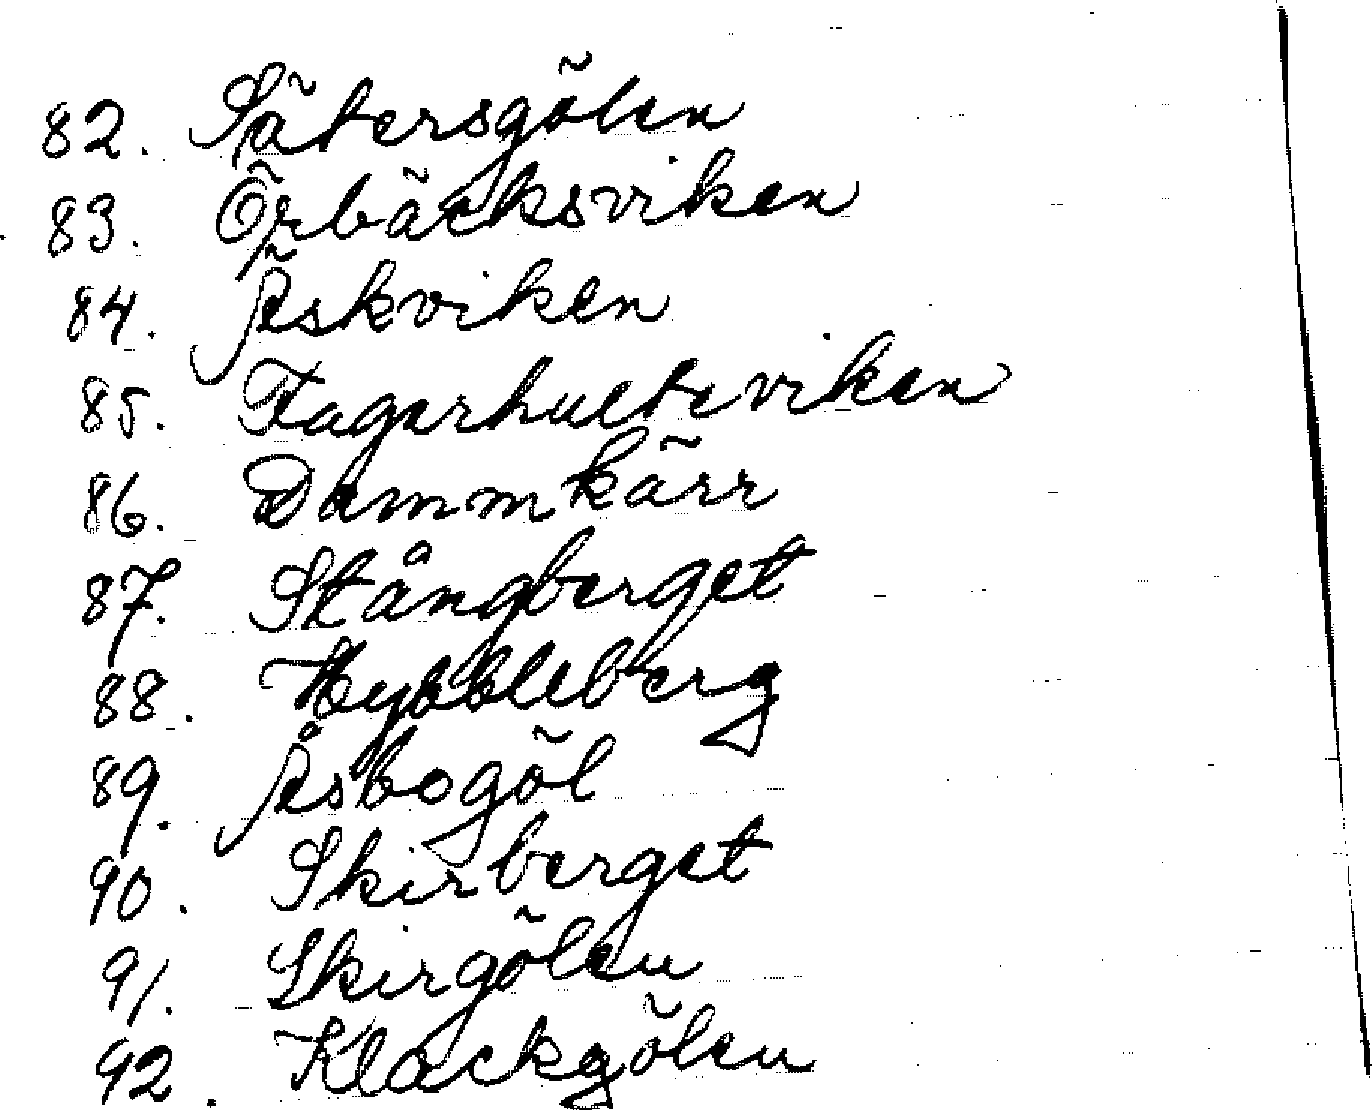 82. Sätersgölen
83. Örbäcksviken
84. Äskviken
85. Fagerhulteviken
86. Dammkärr
87. Stångberget
88. Hybbleberg
89. Åsbogöl
90. Skirberget
91. Skirgölen
92. Klackgölen